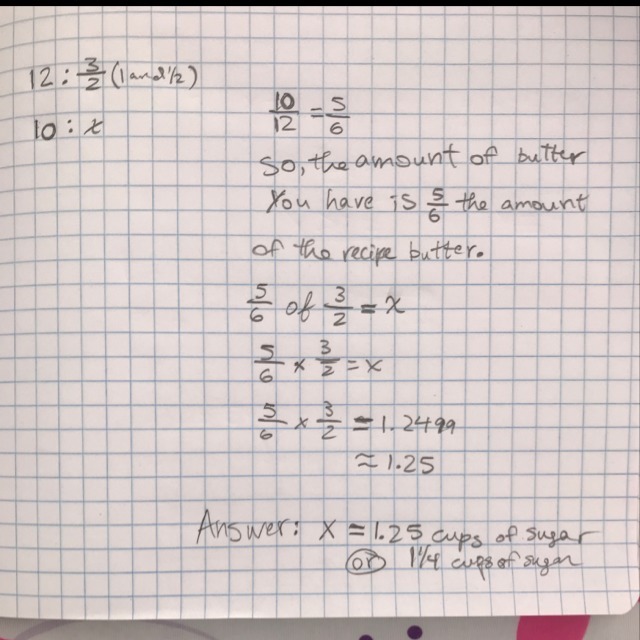 12 : 3/2 (1 and 1/2)
10 : x
10/12 = 5/6
so, the amount of butter
You have is 5/6 the amount
of the recipe butter.
5/6 of 3/2 = x
5/6 × 3/2 = x
5/6 × 3/2 = 1.2499
≈ 1.25
Answer: x = 1.25 cups of sugar
or 1 1/4 cups of sugar